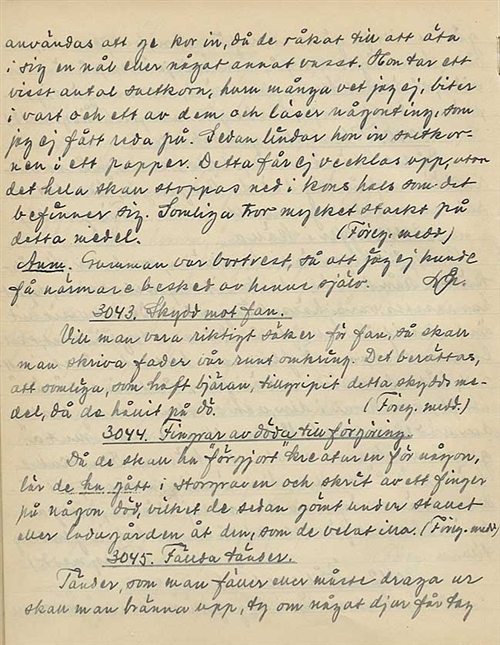 användas att ge kor in, då de råkat till att äta
i sig en nål eller något annat vasst. Hon tar ett
visst antal saltkorn, hum många vet jag ej, biter
i vart och ett av dem och läser någonting, som
jag ej fått reda på. Sedan lindar hon in saltkor-
nen i ett papper. Detta får ej vecklas upp, utan
det hela skall stoppas ned i kons hals som det
befinner sig. Somliga tror mycket starkt på
detta medel. (Föreg. medd)
Anm. Gumman var bortrest, så att jag ej kunde
få närmare besked av henne själv.
3043. Skydd mot fan.
Vill man vara riktigt säker för fan, så skall
man skriva fader vår runt omkring. Det berättas,
att somliga, som haft bjäran, tillgripit detta skydds me-
del, då de hållit på dö. (Föreg. medd.)
3044. Fingrar av döda till förgöring.
Då de skall ha "förgjort" kreaturen för någon,
lär de ha gått i storgraven och skrit av ett finger
på någon död, vilket de sedan gömt under stallet
eller ladugården åt den, som de velat illa. (Föreg. medd)
3045. Fällda tänder.
Tänder, som man fäller eller måste draga ur
skall man bränna upp, ty om något djur får tag